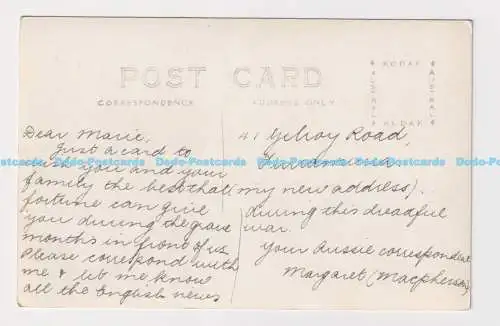 POST CARD
CORRESPONDENCE
ADDRESS ONLY
KODAK
AUSTRAL
AUSTRAL
KODAK
Dear Marie,
Just a card to
wish you and your
family the best that
fortune can give
you during the grave
months in front of us
Please correspond with
me & let me know
all the English news
41 Gilroy Road,
Turramurra
(my new address).
during this dreadful
war.
Your Aussie correspondent
Margaret (Macpherson)
Dodo-Postcards Dodo-Postcards Dodo-Postcards Dodo-Postcards Dodo-Postcards